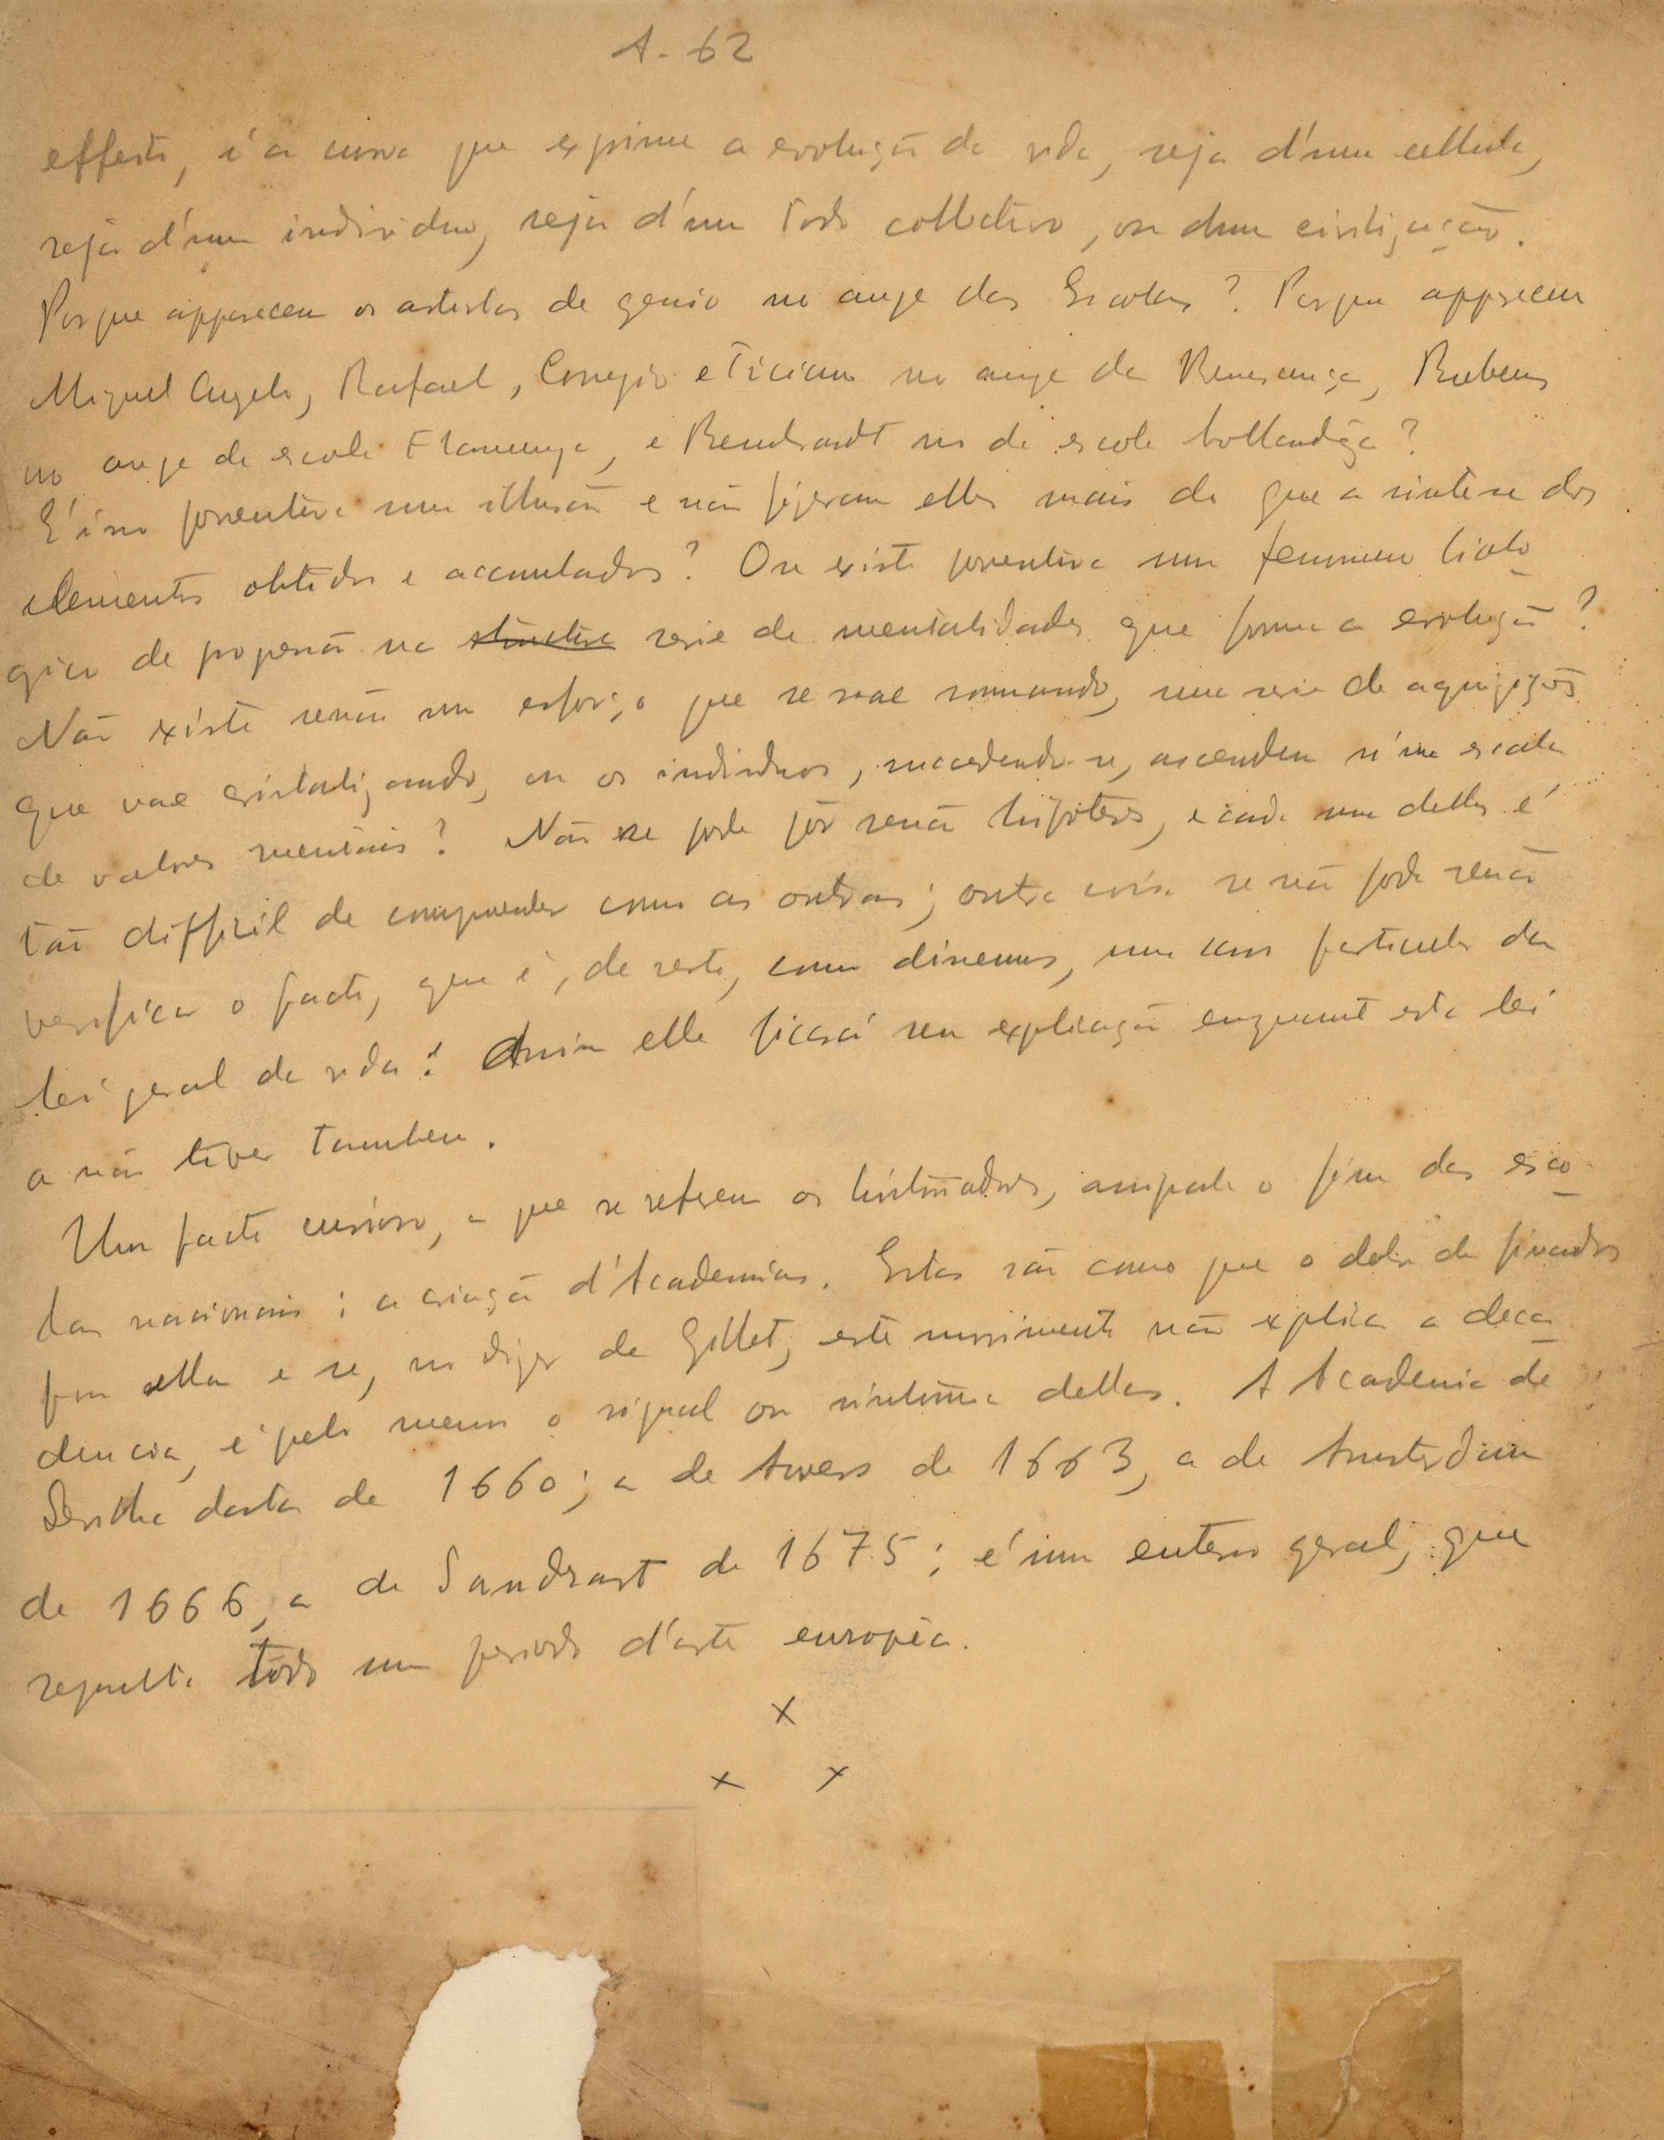 A-62
effeito, é a curva que exprime a evolução da vida, seja d'uma cellula,
seja d'um individuo, seja d'um todo collectivo, ou duma civilização.
Porque apparecem os artistas de genio no auge das Escolas? Porque apparecem
Miguel Angelo, Rafael, Corregio e Ticiano no auge da Renascença, Rubens
no auge da escola Flamenga, e Rembrandt no da escola hollandêza?
E' isso porventura uma illusão e não fizeram elles mais do que a sintese dos
elementos obtidos e accumulados? Ou existe porventura um fenomeno biolo
gico de progressão na serie de mentalidades que forma a evolução?
Não existe senão um esforço que se vae sommando, uma serie de aquizições
que vae cristalizando, ou os individuos, succedendo-se, ascendem n'uma escala
de valores mentais? Não se pode pôr senão hipoteses, e cada uma dellas é
tão difficil de comprender como as outras; outra coisa se não pode senão
verificar o facto, que é, de resto, como dissemos, um caso particular da
lei geral da vida: Assim elle ficará sem explicação emquanto esta lei
a não tiver tambem.
Um facto curioso, a que se referem os historiadores, acompanha o fim das esco
las nacionais: a criação d'Academias. Estas são como que o dobre de finados
por ellas e se, no dizer de Gillet, este movimento não explica a deca
dencia, é pelo menos o signal ou sintoma dellas. A Academia de
Sevilha data de 1660; a de Anvers de 1663, a de Amsterdam
de 1666, a de Sandrart de 1675; é um enterro geral, que
sepulta todo um periodo d'arte europêa.
x
x x